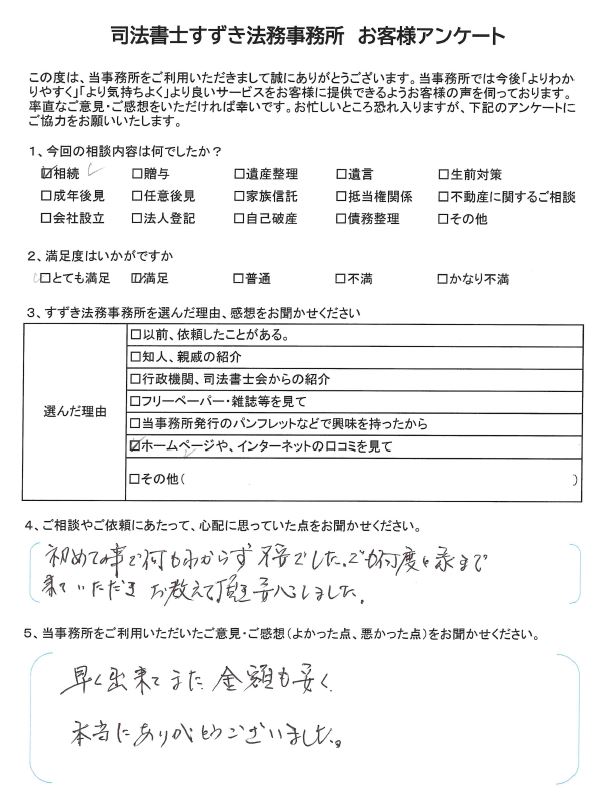 司法書士すずき法務事務所 お客様アンケート
この度は、当事務所をご利用いただきまして誠にありがとうございます。当事務所では今後「よりわか
りやすく」「より気持ちよく」より良いサービスをお客様に提供できるようお客様の声を伺っております。
率直なご意見・ご感想をいただければ幸いです。お忙しいところ恐れ入りますが、下記のアンケートに
ご協力をお願いいたします。
1、今回の相談内容は何でしたか?
☑相続 □贈与 □遺産整理 □遺言 □生前対策
□成年後見 □任意後見 □家族信託 □抵当権関係 □不動産に関するご相談
□会社設立 □法人登記 □自己破産 □債務整理 □その他
2、満足度はいかがですか
□とても満足 ☑満足 □普通 □不満 □かなり不満
3、すずき法務事務所を選んだ理由、感想をお聞かせください
選んだ理由
□以前、依頼したことがある。
□知人、親戚の紹介
□行政機関、司法書士会からの紹介
□フリーペーパー・雑誌等を見て
□当事務所発行のパンフレットなどで興味を持ったから
☑ホームページや、インターネットの口コミを見て
□その他( )
4、ご相談やご依頼にあたって、心配に思っていた点をお聞かせください。
初めての事で何もわからず 不安でした。でも何度も家まで
来ていただき お教えて頂き安心しました。
5、当事務所をご利用いただいたご意見・ご感想(よかった点、悪かった点)をお聞かせください。
早く出来てまた 金額も安く
本当にありがとうございました。